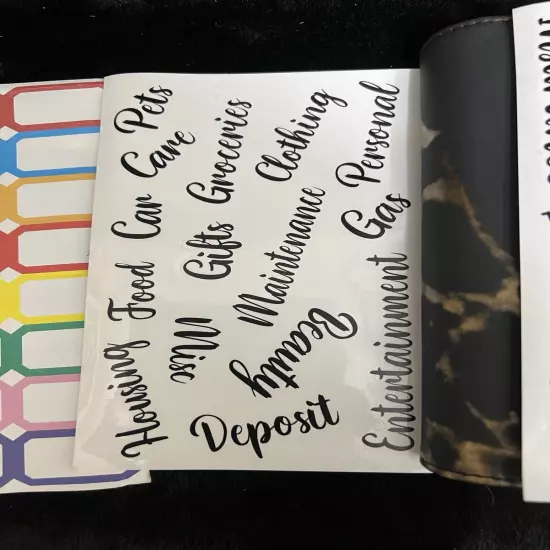 Pets
Care
Car
Food
Housing
Groceries
Gifts
Misc
Clothing
Maintenance
Beauty
Deposit
Personal
Gas
Entertainment